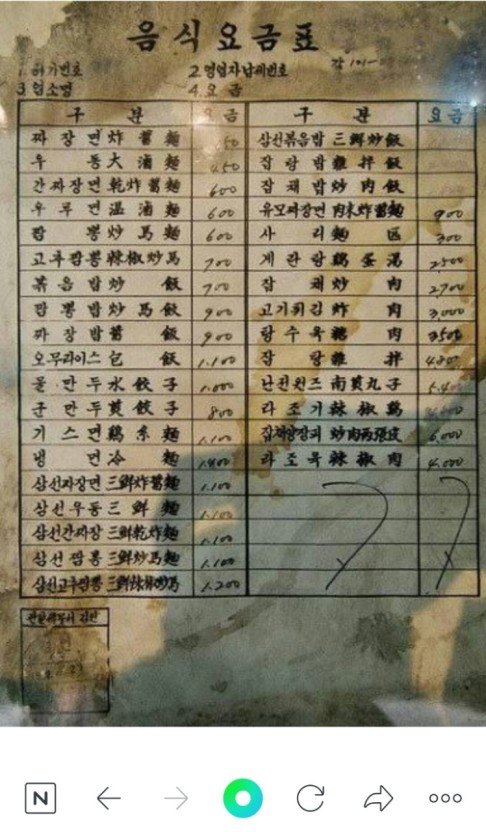 음식요금표
1. 허가번호 2. 영업자납세번호
3. 업소명 4. 요금
구 분 요금 구 분 요금
짜장면 炸醬麵 삼선볶음밥 三鮮炒飯
우동 大滷麵 450 잡탕밥 雜拌飯
간짜장면 乾炸醬麵 600 잡채밥 炒肉飯
우루면 溫滷麵 600 유모짜장면 肉末炸醬麵 900
짬뽕 炒馬麵 600 사리 麵 300
고추짬뽕 辣椒炒馬 700 계란탕 鷄蛋湯 2500
볶음밥 炒飯 700 잡채 炒肉 2700
짬뽕밥 炒馬飯 900 고기튀김 炸肉 3,000
짜장밥 醬飯 900 탕수육 糖肉 3500
오무라이스 包飯 1.100 잡탕 雜拌 4800
물만두 水餃子 1.000 난젼완즈 南煎丸子 5.400
군만두 煎餃子 800 라조기 辣椒鷄
기스면 鷄糸麵 1.100 잡채양장피 炒肉兩張皮 6,000
냉면 冷麵 1.400 라조육 辣椒肉 4.000
삼선짜장면 三鮮炸醬麵 1.100
삼선우동 三鮮麵 1.100
삼선간짜장 三鮮乾炸麵 1.100
삼선짬뽕 三鮮炒馬麵 1.100
삼선고추짬뽕 三鮮辣椒炒馬 1.200
N